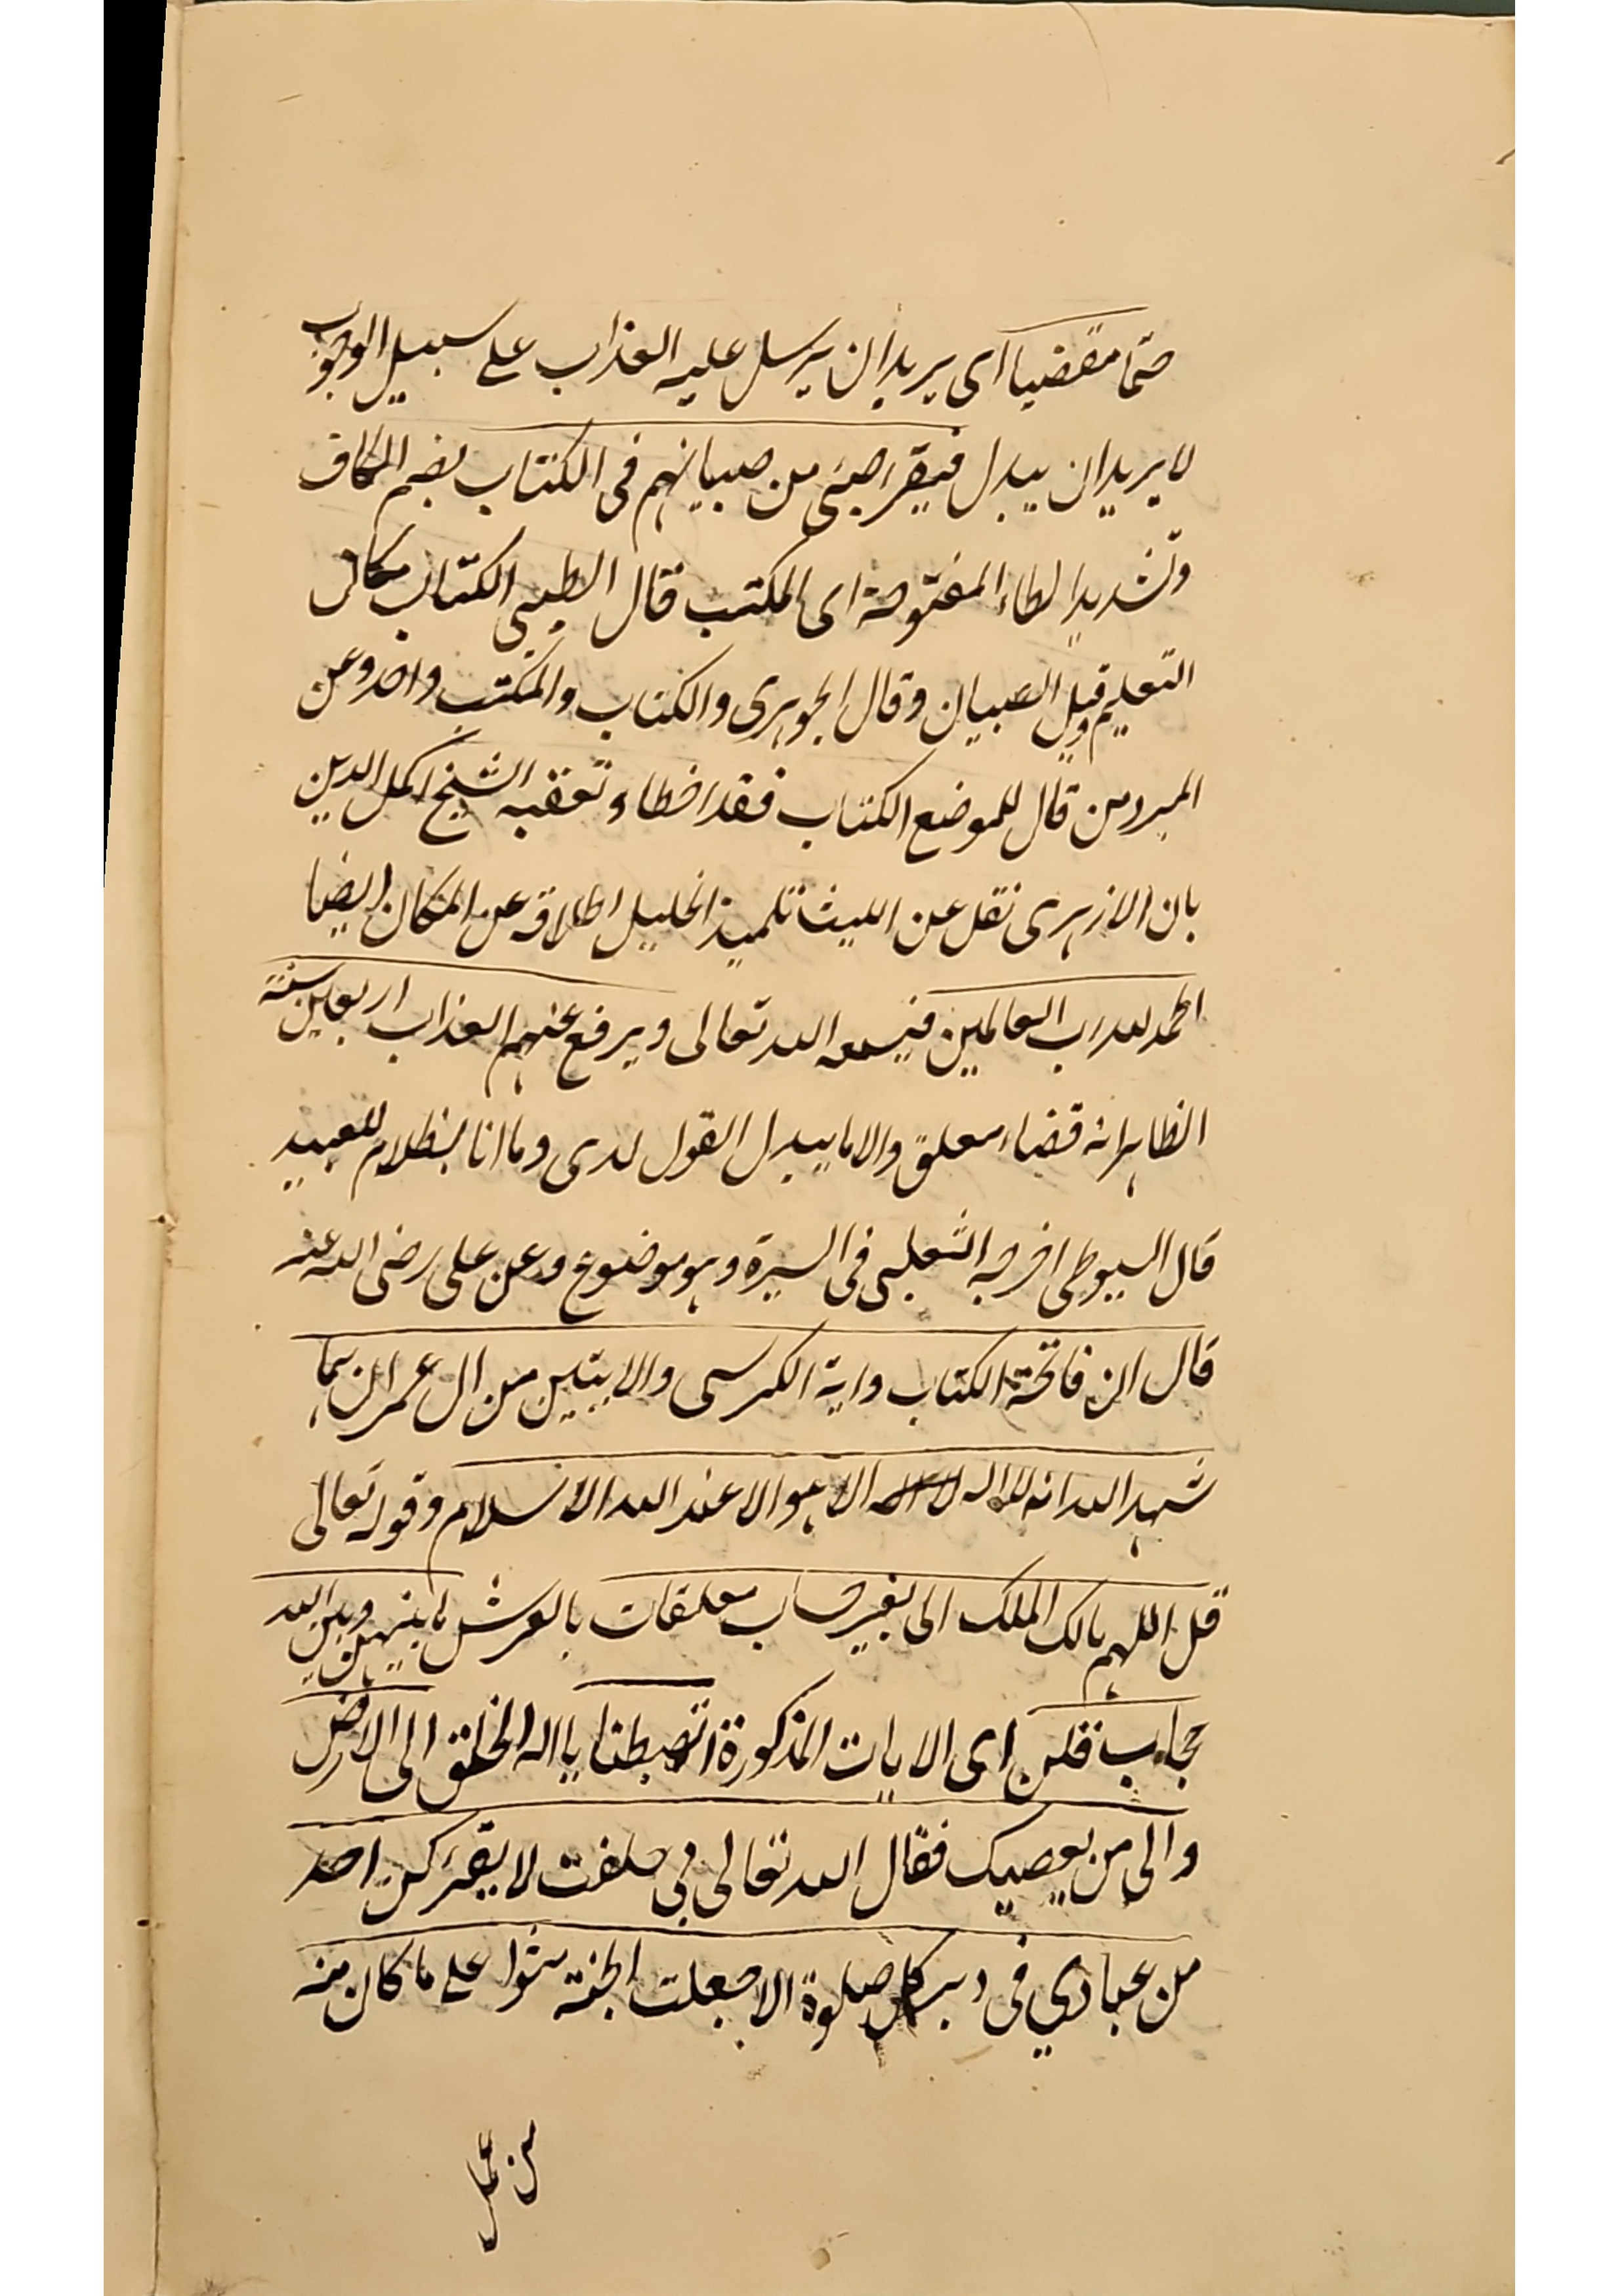 حتما مقضيا اى يريد ان يرسل عليه العذاب على سبيل الوجوب
لا يريد ان يبدل فيقرء صبى من صبيانهم فى الكتاب بضم الكاف
وتشديد لطاء المفتوحة اى المكتب قال الطيبى الكتاب مكان
التعليم وقيل الصبيان وقال الجوهرى والكتاب والمكتب واحد وعن
المبرد من قال للموضع الكتاب فقد اخطاء وتعقبه الشيخ اكمل الدين
بان الازهرى نقل عن الليث تلميذ الخليل اطلاقه عن المكان ايضا
الحمد لله رب العالمين فيسمعه الله تعالى ويرفع عنهم العذاب اربعين سنة
الظاهر انه قضاء معلق والا ما يبدل القول لدى وما انا بظلام للعبيد
قال السيوطى اخرجه الثعلبى فى السيرة وهو موضوع وعن على رضى الله عنه
قال ان فاتحة الكتاب واية الكرسى والايتين من ال عمران هما
شهد الله انه لا اله الا هو الا عند الله الاسلام وقوله تعالى
قل اللهم مالك الملك الى بغير حساب معلقات بالعرش ما بينهن وبين الله
حجاب فقلن اى الايات المذكورة اتهبطنا يا اله الخلق الى الارض
والى من يعصيك فقال الله تعالى بى حلفت لا يقرءكن احد
من عبادي فى دبر كل صلوة الا جعلت الجنة مثوا على ما كان منه
من عمل